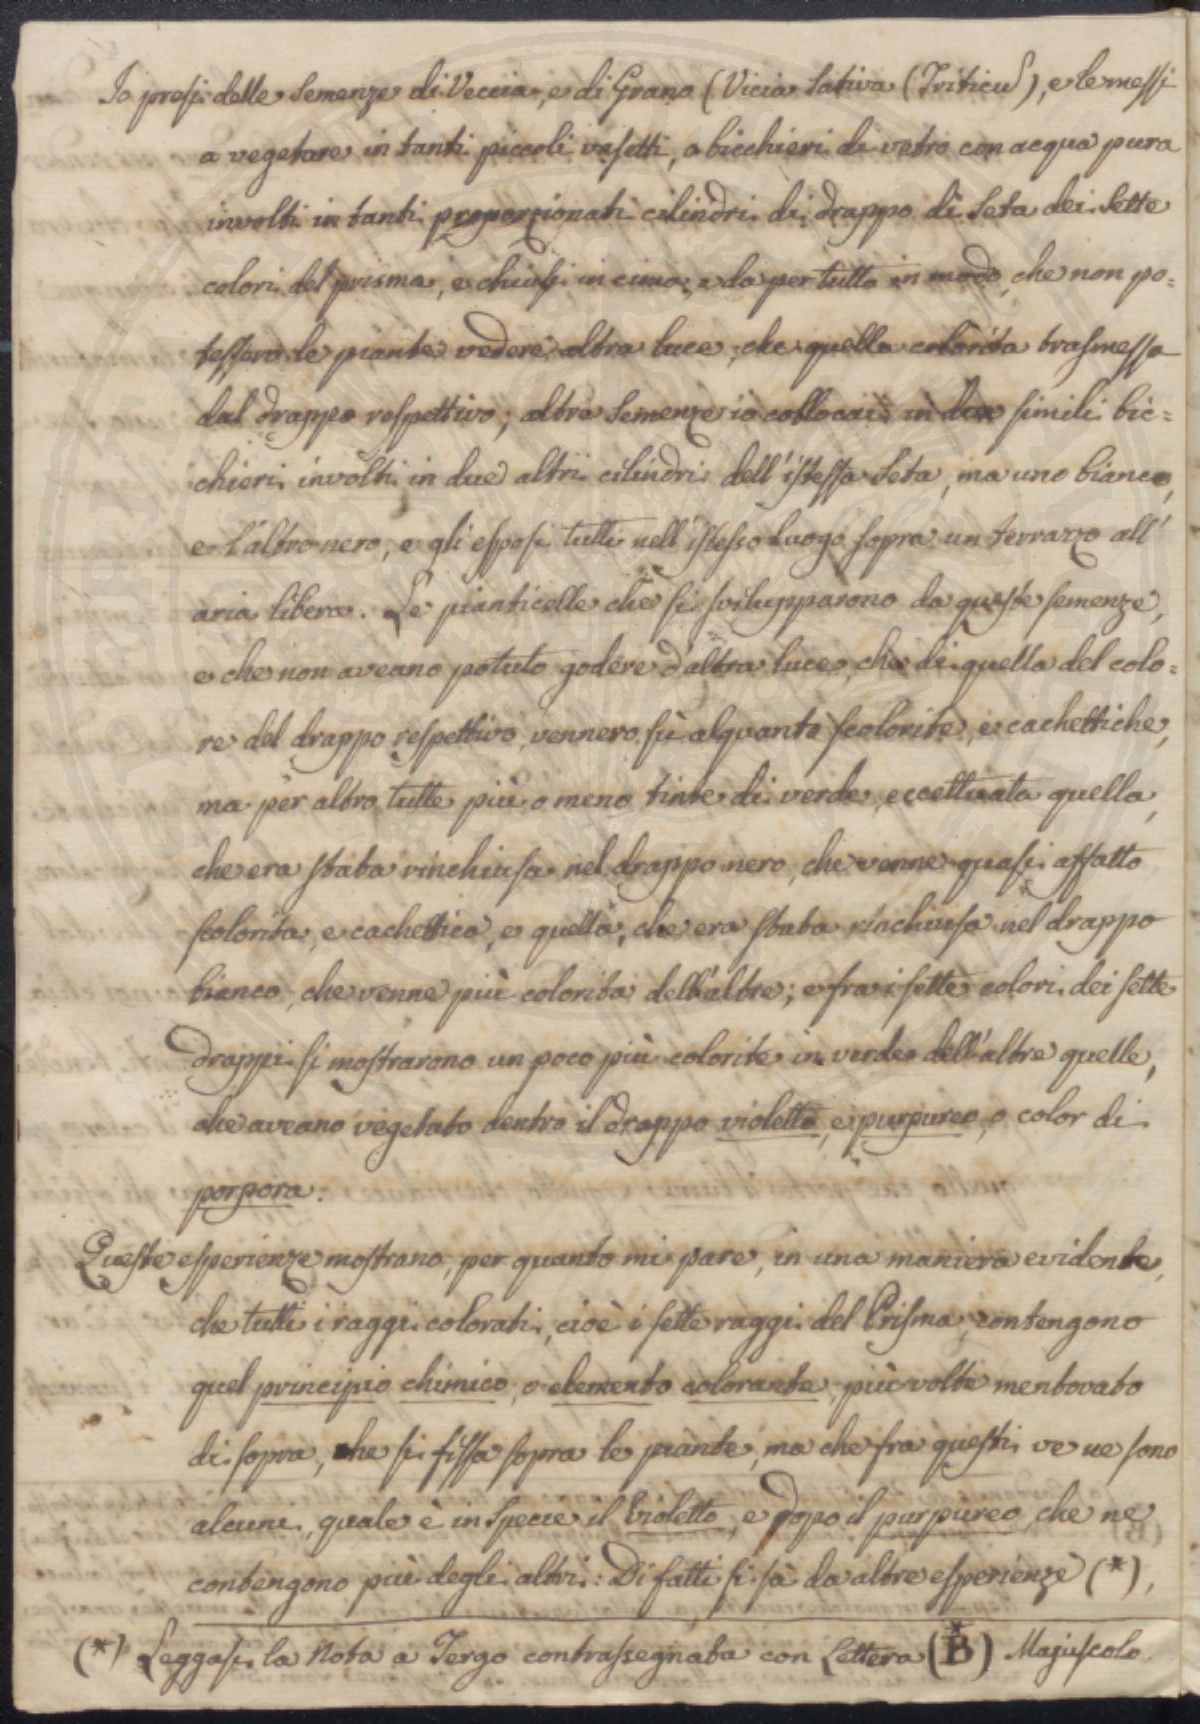 Io presi delle semenze di Veccia, e di Grano (Vicia Sativa (Triticu), e le messi
a vegetare in tanti piccoli vasetti, o bicchieri di vetro con acqua pura
involti in tanti proporzionati cilindri di drappo di Seta dei Sette
colori del prisma, e chiusi in cima, e da per tutto in modo, che non po=
tessero le piante vedere altra luce, che quella colorita trasmessa
dal drappo respettivo; altre semenze io collocai in due simili bic=
chieri involti in due altri cilindri dell'istessa Seta, ma uno bianco,
e l'altro nero, e gli esposi tutti nell'istesso Luogo sopra un terrazzo all'
aria libera. Le pianticelle che si svilupparono da queste semenze,
e che non aveano potuto godere d'altra luce, che di quella del colo=
re del drappo respettivo, vennero sù alquanto scolorite, e cachettiche,
ma per altro tutte più o meno tinte di verde, eccettuata quella,
che era stata rinchiusa nel drappo nero, che venne quasi affatto
scolorita, e cachettica, e quella, che era stata rinchiusa nel drappo
bianco, che venne più colorita dell'altre; e fra i sette colori dei sette
drappi si mostrarono un poco più colorite in verde dell'altre quelle,
che aveano vegetato dentro il drappo violetto, e purpureo, o color di
porpora.
Queste esperienze mostrano, per quanto mi pare, in una maniera evidente,
che tutti i raggi colorati, cioè i sette raggi del Prisma, contengono
quel principio chimico, o elemento colorante, più volte mentovato
di sopra, che si fissa sopra le piante, ma che fra questi ve ne sono
alcuni, quale è in specie il Violetto, e dopo il purpureo, che ne
contengono più degli altri: Di fatti si sà da altre esperienze (*),
(*) Leggasi la Nota a Tergo contrassegnata con Lettera (B) Majuscolo.